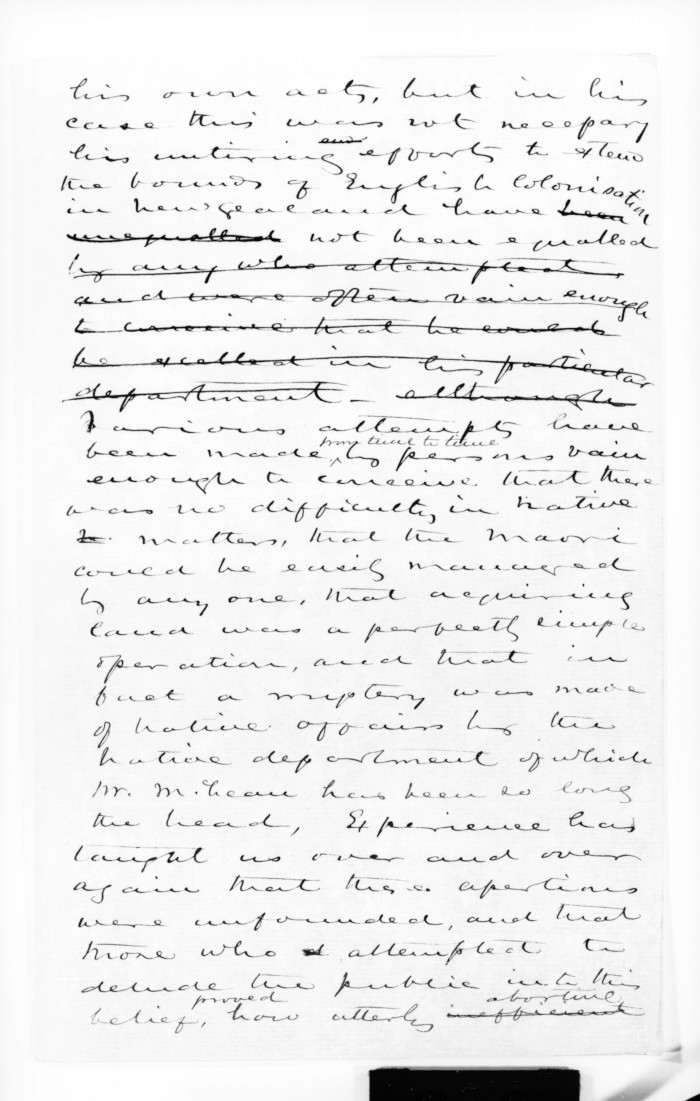 his own acts, but in his
case this was not necessary
his untiring efforts to extend
the bounds of English Colonisation
in New Zealand have been
unequalled not been equalled
by any who attempted
and were often vain enough
to conceive that he could
be excelled in his particular
department - although
Various attempts have
from time to time
been made, by persons vain
enough to conceive that there
was no difficulty in Native
matters, that the Maori
could be easily managed
by any one, that acquiring
land was a perfectly simple
operation, and that in
fact a mystery was made
of Native affairs by the
Native department of which
Mr. McLean has been so long
the head, Experience has
taught us over and over
again that these assertions
were unfounded, and that
those who attempted to
delude the public into this
proved abortive
belief, how utterly inefficient